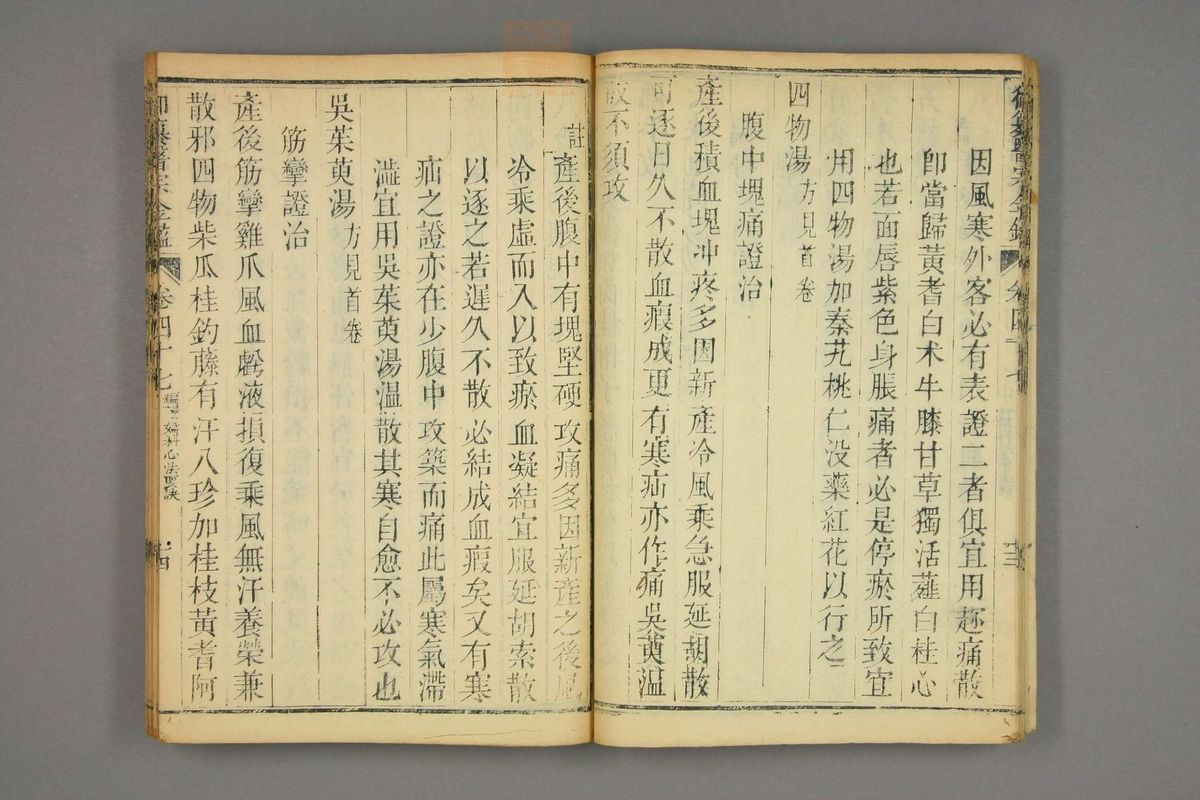 御纂醫宗金鑑 卷四十七 十三
因風寒外客必有表證二者俱宜用趂痛散
卽當歸黃耆白术牛膝甘草獨活薤白桂心
也若面唇紫色身脹痛者必是停瘀所致宜
用四物湯加秦艽桃仁没藥紅花以行之
四物湯方見首卷
腹中塊痛證治
產後積血塊冲疼多因新產冷風乘急服延胡散
可逐日久不散血瘕成更有寒疝亦作痛吳茰温
散不須攻
註產後腹中有塊堅硬攻痛多因新產之後風
冷乘虛而入以致瘀血凝結宜服延胡索散
以逐之若遲久不散必結成血瘕矣又有寒
疝之證亦在少腹中攻築而痛此屬寒氣滯
澁宜用吳茱茰湯温散其寒自愈不必攻也
吳茱茰湯方見首卷
筋攣證治
產後筋攣雞爪風血虧液損復乘風無汗養榮兼
散邪四物柴瓜桂鈎藤有汗八珍加桂枝黃耆阿
御纂醫宗金鑑 卷四十七 編輯婦科心法要訣 十四